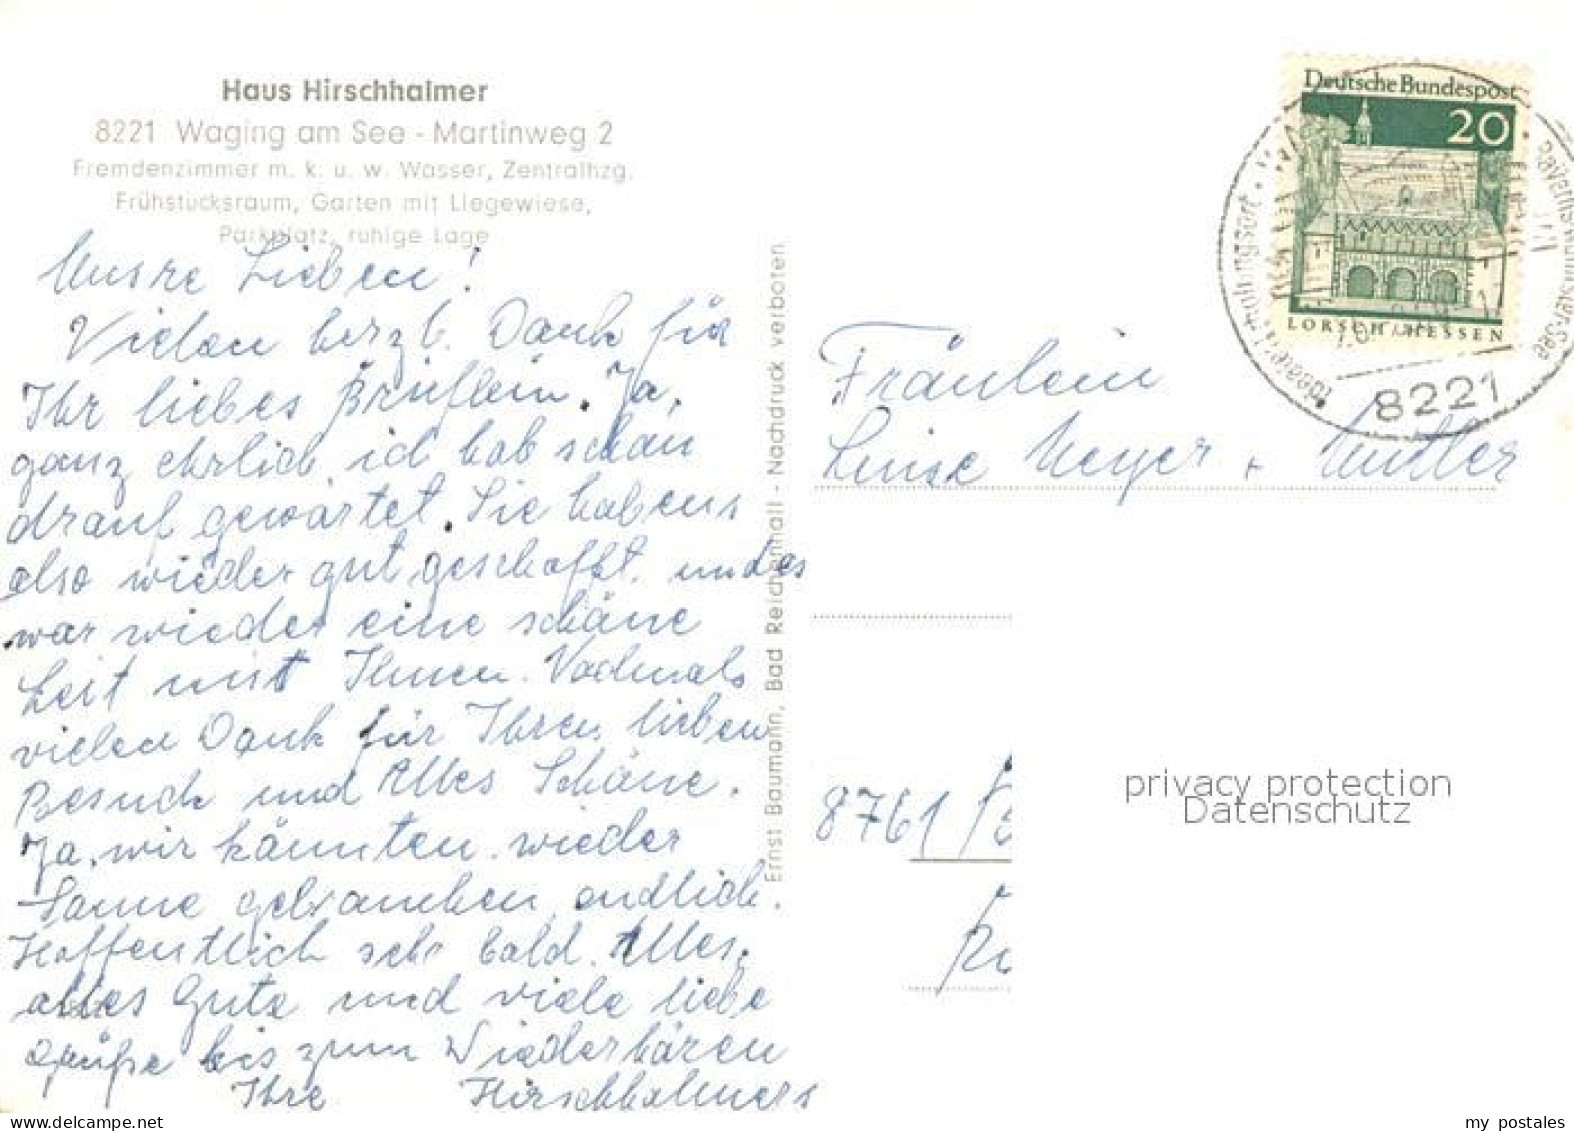 Haus Hirschhalmer
8221 Waging am See - Martinweg 2
Fremdenzimmer m. k. u. w. Wasser, Zentralhzg.
Frühstücksraum, Garten mit Liegewiese,
Parkplatz, ruhige Lage
Unsre Lieben!
Vielen herzl. Dank für
Ihr liebes Brieflein. Ja,
ganz ehrlich, ich hab schon
drauf gewartet. Sie habens
also wieder gut geschafft. und es
war wieder eine schöne
Zeit mit Ihnen. Nochmals
vielen Dank für Ihren lieben
Besuch und Alles Schöne.
Ja, wir könnten wieder
Sonne gebrauchen, endlich.
Hoffentlich sehr bald. Alles,
alles Gute und viele liebe
Grüße bis zum Wiederhören
Ihre Hirschhalmers
Ernst Baumann, Bad Reichenhall - Nachdruck verboten
Deutsche Bundespost
20
LORSCH/HESSEN
8221
Fräulein
Luise Meyer + Mutter
8761
privacy protection
Datenschutz
my postales